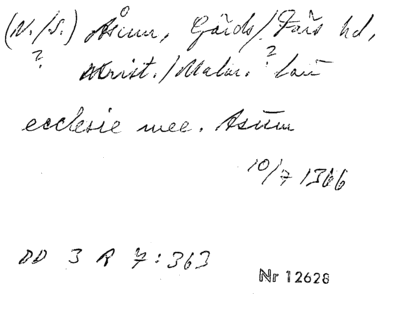 (N./S.) Åsum, Gärds/Färs hd,
? Krist./Malm. ? län
ecclesie mee. Asūm
10/7 1366
DD 3 R 7:363
Nr 12628